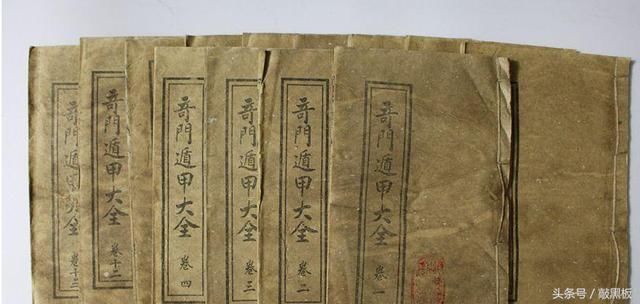 竒門遁甲大全 卷一
竒門遁甲大全 卷二
竒門遁甲大全 卷三
竒門遁甲大全 卷四
竒門遁甲大全 卷十二
竒門遁甲大全 卷十三
头条号 / 敲黑板